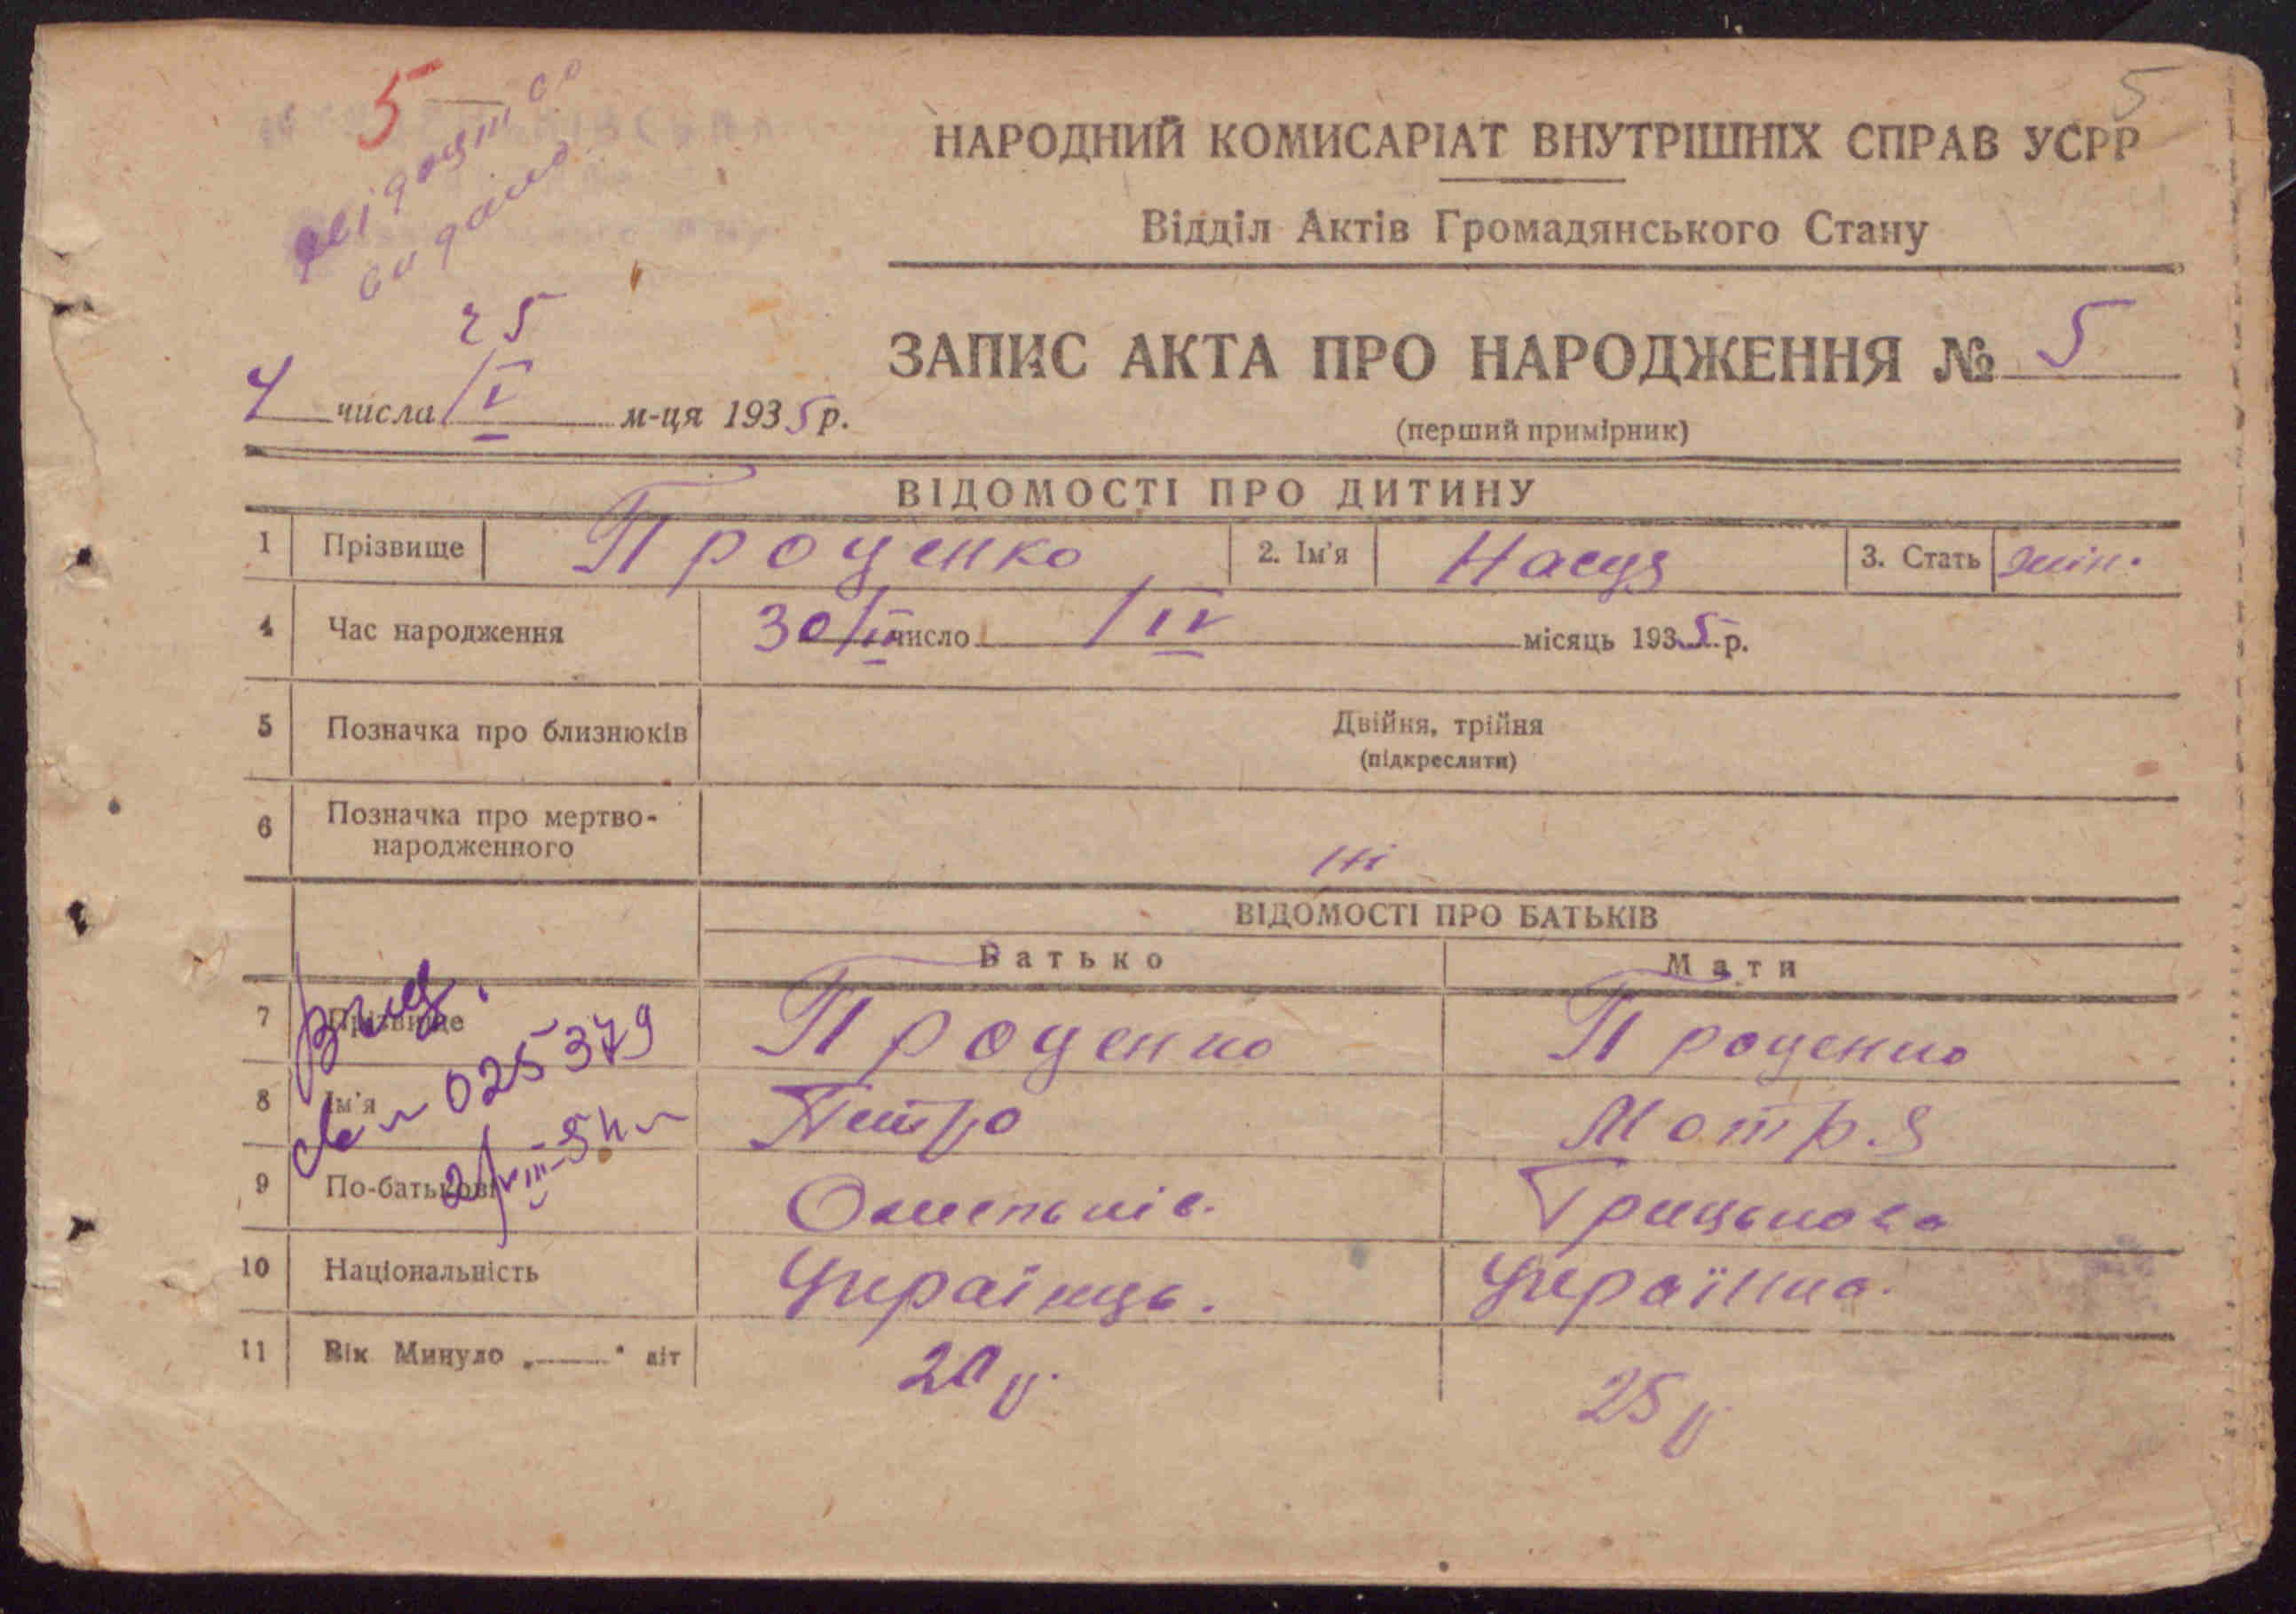 5
5
свідоцтво
видано
НАРОДНИЙ КОМИСАРІАТ ВНУТРІШНІХ СПРАВ УСРР
Відділ Актів Громадянського Стану
25
ЗАПИС АКТА ПРО НАРОДЖЕННЯ № 5
4 числа /V м-ця 1935 р.
(перший примірник)
ВІДОМОСТІ ПРО ДИТИНУ
1 Прізвище Проценко 2. Ім'я Насця 3. Стать жін.
4 Час народження 30/IV число /IV місяць 1935 р.
5 Позначка про близнюків Двійня, трійня
(підкреслити)
6 Позначка про мертво-
народженного ні
ВІДОМОСТІ ПРО БАТЬКІВ
Батько Мати
7 Прізвище Проценко Проценко
8 Ім'я Петро Мотря
9 По-батькові Омельків. Грицькова
10 Національність Українць. Українка.
11 Вік Минуло „——" літ 25 р
025379
2/VIII-54